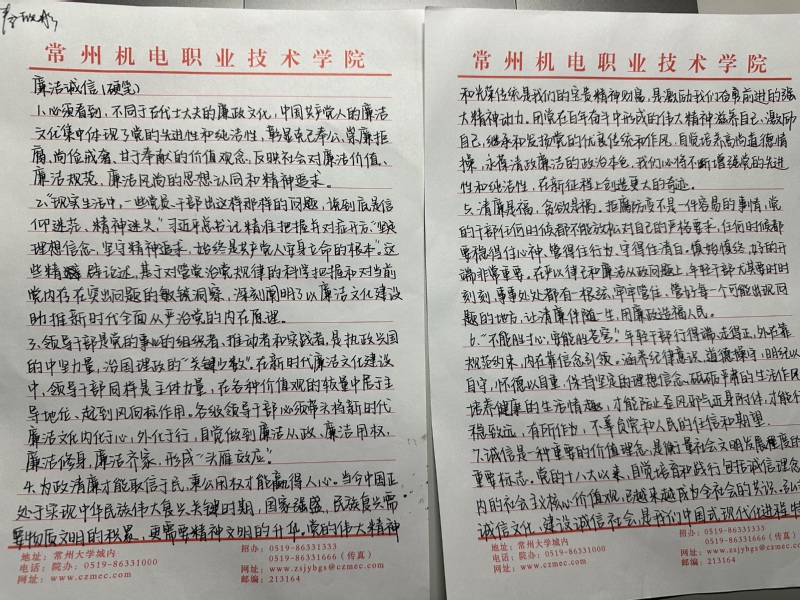 常州机电职业技术学院
廉洁诚信(硬笔)
1.必须看到,不同于古代士大夫的廉政文化,中国共产党人的廉洁
文化集中体现了党的先进性和纯洁性,彰显克己奉公、崇廉拒
腐、尚俭戒奢、甘于奉献的价值观念,反映社会对廉洁价值、
廉洁规范、廉洁风尚的思想认同和精神追求。
2."现实生活中,一些党员干部出这样那样的问题,说到底是信
仰迷茫、精神迷失。"习近平总书记精准把握并对症开方:"坚定
理想信念,坚守精神追求,始终是共产党人安身立命的根本"。这
些精辟论述,基于对管党治党规律的科学把握和对当前
党内存在突出问题的敏锐洞察,深刻阐明了以廉洁文化建设
助推新时代全面从严治党的内在原理。
3.领导干部是党的事业的组织者、推动者和实践者,是执政兴国
的中坚力量,治国理政的"关键少数"。在新时代廉洁文化建设
中,领导干部同样是主体力量,在各种价值观的较量中居于主
导地位、起到风向标作用。各级领导干部必须带头将新时代
廉洁文化内化于心,外化于行,自觉做到廉洁从政、廉洁用权,
廉洁修身、廉洁齐家,形成"头雁效应"。
4.为政清廉才能取信于民,秉公用权才能赢得人心。当今中国正
处于实现中华民族伟大复兴关键时期,国家强盛,民族复兴需
要物质文明的积累,更需要精神文明的升华。党的伟大精神
地址:常州大学城内
电话:院办:0519-86331000
网址:www.czmec.com
招办:0519-86331333
0519-86331666(传真)
网址:www.zsjybgs@czmec.com
邮编:213164
常州机电职业技术学院
和光荣传统是我们的宝贵精神财富,是激励我们奋勇前进的强
大精神动力。用党在百年奋斗中形成的伟大精神滋养自己、激励
自己,继承和发扬党的优良传统和作风,自觉培养高尚道德情
操,永葆清政廉洁的政治本色,我们必将不断增强党的先进
性和纯洁性,在新征程上创造更大的奇迹。
5.清廉是福,贪欲是祸。拒腐防变不是一件容易的事情,党
的干部任何时候都不能放松对自己的严格要求,任何时候都
要稳得住心神、管得住行为、守得住清白。慎始慎终,好的开
端非常重要。在严以律己和廉洁从政问题上,年轻干部尤其要时时
刻刻、事事处处都有一根弦,牢牢管住,管好每一个可能出现问
题的地方,让清廉伴随一生,用廉政造福人民。
6."不能胜寸心,安能胜苍穹"。年轻干部行得端、走得正,外在靠
规范约束,内在靠信念引领。涵养纪律意识、道德操守,明纪以
自守,怀德以自重,保持坚定的理想信念、砥砺严肃的生活作风、
培养健康的生活情趣,才能防止歪风邪气近身附体,才能行
稳致远,有所作为,不辜负党和人民的信任和期望。
7.诚信是一种重要的价值理念,是衡量社会文明发展程度的
重要标志。党的十八大以来,自觉培育和践行包括诚信理念
内的社会主义核心价值观,已越来越成为全社会的共识。弘
诚信文化、建设诚信社会,是我们中国式现代化进程
地址:常州大学城内
电话:院办:0519-86331000
网址:www.czmec.com
招办:0519-86331333
0519-86331666(传真)
网址:www.zsjybgs@czmec.com
邮编:213164